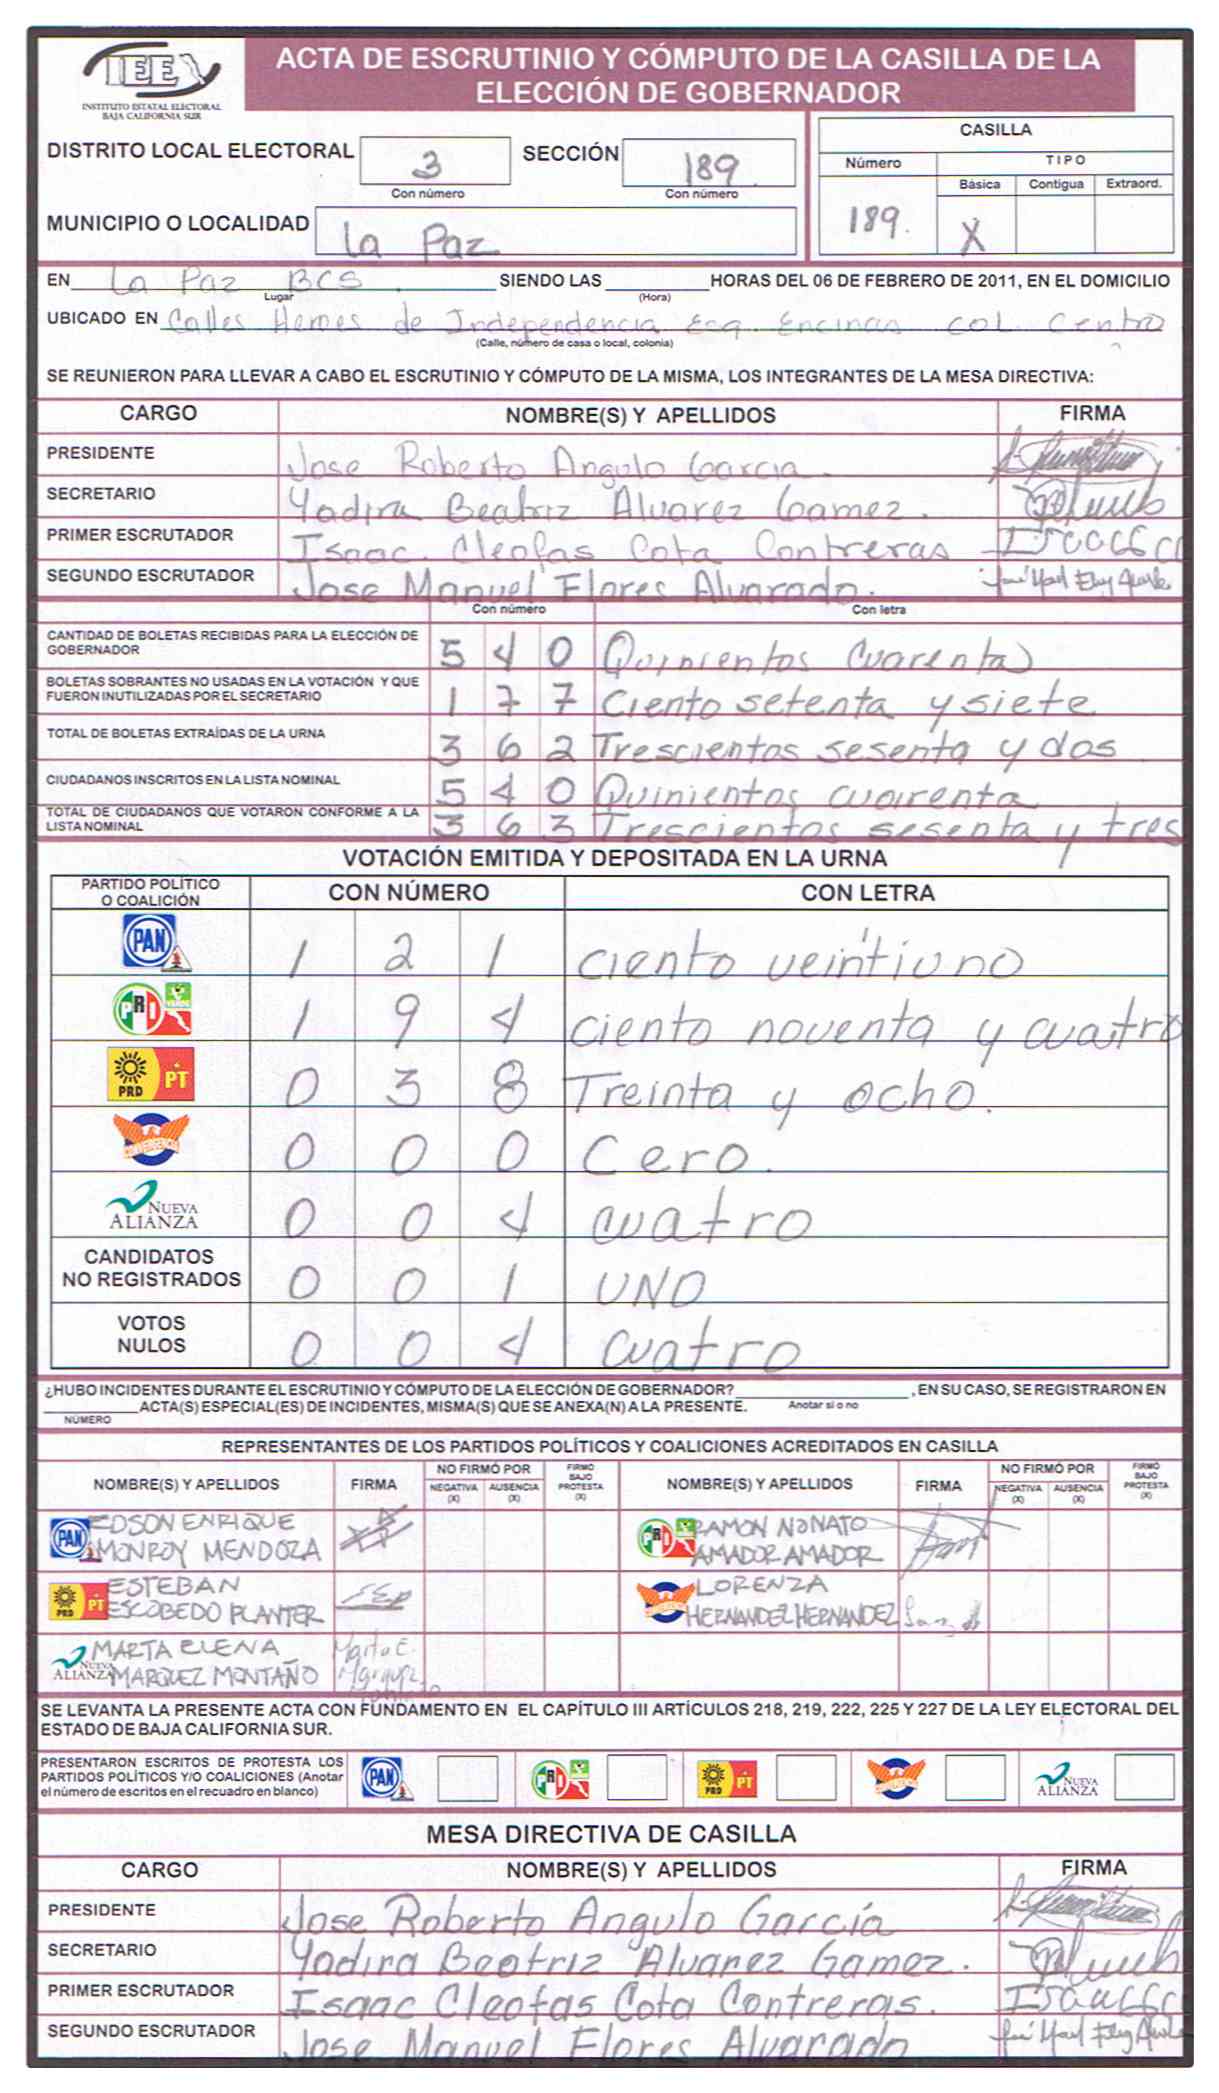 IEE
INSTITUTO ESTATAL ELECTORAL
BAJA CALIFORNIA SUR
ACTA DE ESCRUTINIO Y CÓMPUTO DE LA CASILLA DE LA
ELECCIÓN DE GOBERNADOR
DISTRITO LOCAL ELECTORAL 3 SECCIÓN 189
Con número Con número
MUNICIPIO O LOCALIDAD La Paz
CASILLA
Número TIPO
Básica Contigua Extraord.
189. X
EN La Paz BCS. SIENDO LAS HORAS DEL 06 DE FEBRERO DE 2011, EN EL DOMICILIO
Lugar (Hora)
UBICADO EN Calles Heroes de Independencia Esq. Encinas COL. Centro
(Calle, número de casa o local, colonia)
SE REUNIERON PARA LLEVAR A CABO EL ESCRUTINIO Y CÓMPUTO DE LA MISMA, LOS INTEGRANTES DE LA MESA DIRECTIVA:
CARGO NOMBRE(S) Y APELLIDOS FIRMA
PRESIDENTE Jose Roberto Angulo Garcia.
SECRETARIO Yadira Beatriz Alvarez Gamez.
PRIMER ESCRUTADOR Isaac Cleofas Cota Contreras
SEGUNDO ESCRUTADOR Jose Manuel Flores Alvarado.
Con número Con letra
CANTIDAD DE BOLETAS RECIBIDAS PARA LA ELECCIÓN DE
GOBERNADOR 5 4 0 Quinientos Cuarenta
BOLETAS SOBRANTES NO USADAS EN LA VOTACIÓN Y QUE
FUERON INUTILIZADAS POR EL SECRETARIO 1 7 7 Ciento setenta y siete
TOTAL DE BOLETAS EXTRAÍDAS DE LA URNA 3 6 2 Trescientos sesenta y dos
CIUDADANOS INSCRITOS EN LA LISTA NOMINAL 5 4 0 Quinientos cuarenta
TOTAL DE CIUDADANOS QUE VOTARON CONFORME A LA
LISTA NOMINAL 3 6 3 Trescientos sesenta y tres
VOTACIÓN EMITIDA Y DEPOSITADA EN LA URNA
PARTIDO POLÍTICO
O COALICIÓN CON NÚMERO CON LETRA
PAN 1 2 1 ciento veintiuno
PRI VERDE 1 9 4 ciento noventa y cuatro
PRD PT 0 3 8 Treinta y ocho.
CONVERGENCIA 0 0 0 Cero.
NUEVA
ALIANZA 0 0 4 cuatro
CANDIDATOS
NO REGISTRADOS 0 0 1 UNO
VOTOS
NULOS 0 0 4 cuatro
¿HUBO INCIDENTES DURANTE EL ESCRUTINIO Y CÓMPUTO DE LA ELECCIÓN DE GOBERNADOR? , EN SU CASO, SE REGISTRARON EN
ACTA(S) ESPECIAL(ES) DE INCIDENTES, MISMA(S) QUE SE ANEXA(N) A LA PRESENTE. Anotar si o no
NÚMERO
REPRESENTANTES DE LOS PARTIDOS POLÍTICOS Y COALICIONES ACREDITADOS EN CASILLA
NOMBRE(S) Y APELLIDOS FIRMA NO FIRMÓ POR NEGATIVA (X) AUSENCIA (X) FIRMÓ BAJO PROTESTA (X) NOMBRE(S) Y APELLIDOS FIRMA NO FIRMÓ POR NEGATIVA (X) AUSENCIA (X) FIRMÓ BAJO PROTESTA (X)
PAN EDSON ENRIQUE
MONROY MENDOZA
PRI RAMON NONATO
AMADOR AMADOR
PRD PT ESTEBAN
ESCOBEDO PLANTER
LORENZA
HERNANDEZ HERNANDEZ
NUEVA ALIANZA MARTA ELENA
MARQUEZ MONTAÑO
Marta E.
SE LEVANTA LA PRESENTE ACTA CON FUNDAMENTO EN EL CAPÍTULO III ARTÍCULOS 218, 219, 222, 225 Y 227 DE LA LEY ELECTORAL DEL
ESTADO DE BAJA CALIFORNIA SUR.
PRESENTARON ESCRITOS DE PROTESTA LOS
PARTIDOS POLÍTICOS Y/O COALICIONES (Anotar
el número de escritos en el recuadro en blanco)
PAN PRI PRD PT NUEVA ALIANZA
MESA DIRECTIVA DE CASILLA
CARGO NOMBRE(S) Y APELLIDOS FIRMA
PRESIDENTE Jose Roberto Angulo García
SECRETARIO Yadira Beatriz Alvarez Gamez.
PRIMER ESCRUTADOR Isaac Cleofas Cota Contreras.
SEGUNDO ESCRUTADOR Jose Manuel Flores Alvarado